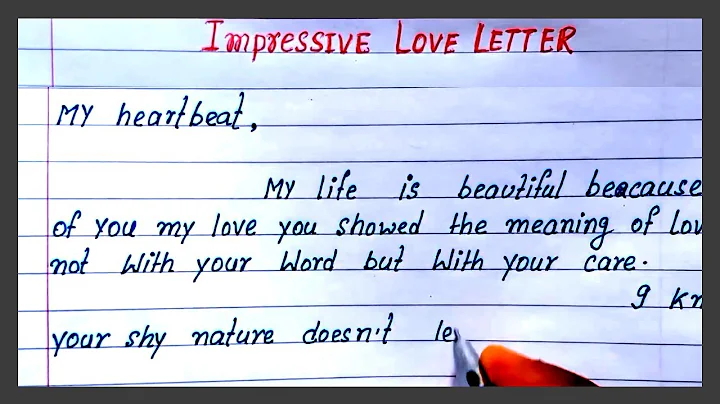 Impressive Love Letter
My heartbeat,
My life is beautiful beacause
of you my love you showed the meaning of Lov
not with your word but with your care.
9 kn
your shy nature doesn't le